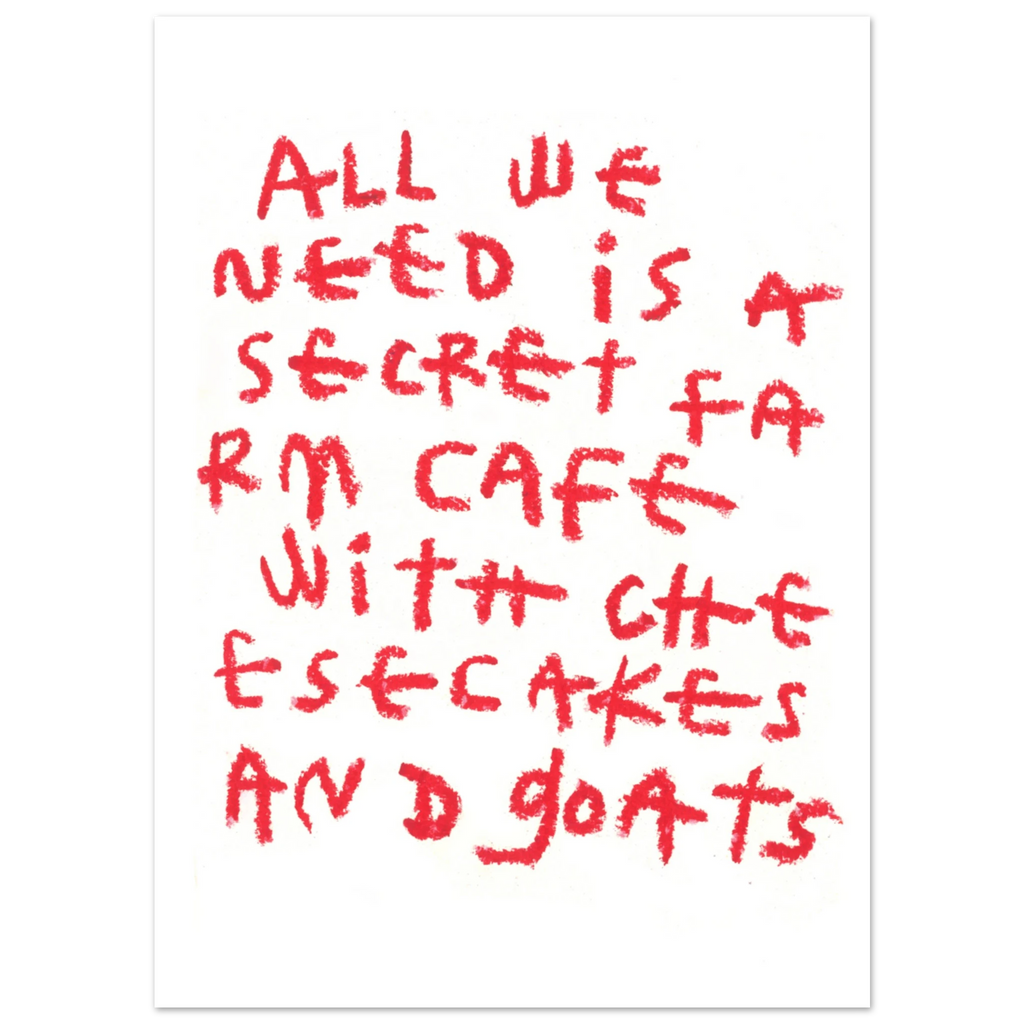 ALL WE
NEED iS A
SECRET FA
RM CAFE
WiTH CHE
ESECAKES
AND gOATS